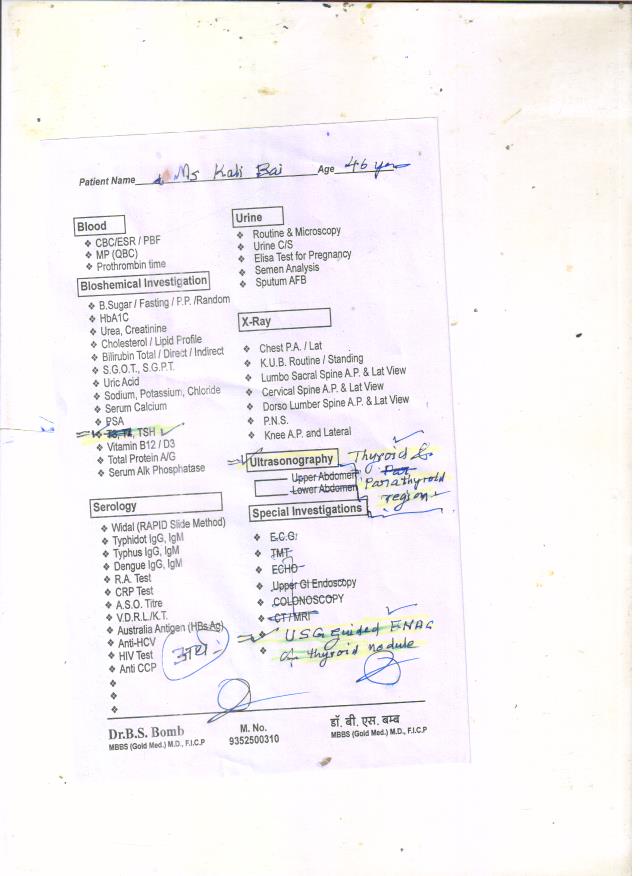 Patient Name Ms Kali Bai Age 46 year
Blood
❖ CBC/ESR / PBF
❖ MP (QBC)
❖ Prothrombin time
Bioshemical Investigation
❖ B.Sugar / Fasting / P.P. /Random
❖ HbA1C
❖ Urea, Creatinine
❖ Cholesterol / Lipid Profile
❖ Bilirubin Total / Direct / Indirect
❖ S.G.O.T., S.G.P.T.
❖ Uric Acid
❖ Sodium, Potassium, Chloride
❖ Serum Calcium
❖ PSA
T3, T4, TSH ✓
❖ Vitamin B12 / D3
❖ Total Protein A/G
❖ Serum Alk Phosphatase
Serology
❖ Widal (RAPID Slide Method)
❖ Typhidot IgG, IgM
❖ Typhus IgG, IgM
❖ Dengue IgG, IgM
❖ R.A. Test
❖ CRP Test
❖ A.S.O. Titre
❖ V.D.R.L./K.T.
❖ Australia Antigen (HBs Ag)
❖ Anti-HCV
❖ HIV Test
❖ Anti CCP
❖
❖
❖
Urine
❖ Routine & Microscopy
❖ Urine C/S
❖ Elisa Test for Pregnancy
❖ Semen Analysis
❖ Sputum AFB
X-Ray
❖ Chest P.A. / Lat
❖ K.U.B. Routine / Standing
❖ Lumbo Sacral Spine A.P. & Lat View
❖ Cervical Spine A.P. & Lat View
❖ Dorso Lumber Spine A.P. & Lat View
❖ P.N.S.
❖ Knee A.P. and Lateral
Ultrasonography Thyroid &
Upper Abdomen Par
Lower Abdomen Parathyroid
region
Special Investigations
❖ E.C.G.
❖ TMT
❖ ECHO
❖ Upper GI Endoscopy
❖ COLONOSCOPY
❖ CT / MRI
❖ USG guided FNAC
❖ of thyroid nodule
Dr.B.S. Bomb
MBBS (Gold Med.) M.D., F.I.C.P
M. No.
9352500310
डॉ. बी. एस. बम्ब
MBBS (Gold Med.) M.D., F.I.C.P